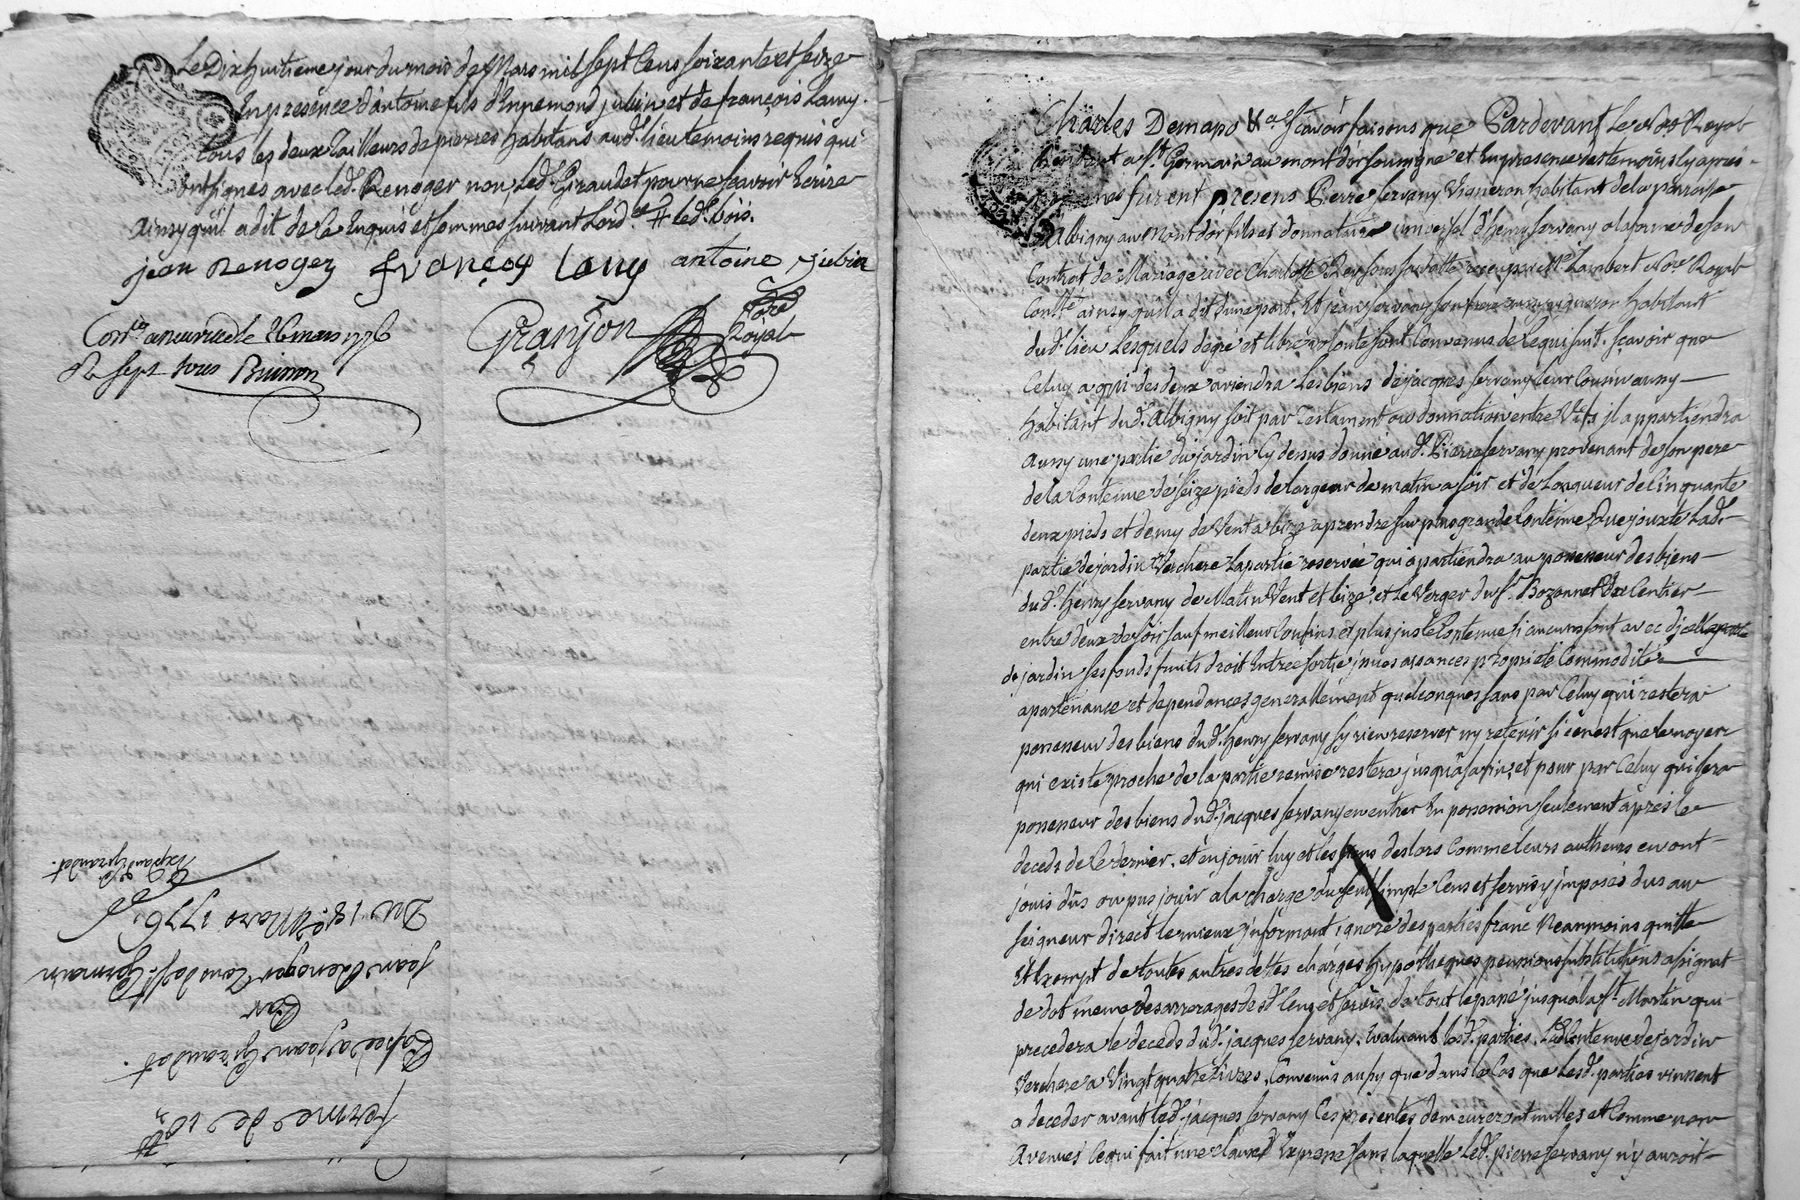 Le Dix huitieme jour du mois de Mars mil sept cens soixante et seize
En presence d'antoine fils d'Ennemond jubin et de françois Lamy
tous les deux Tailleurs de pierres habitans aud. lieu temoins requis qui
ont signés avec led. Renoger non led. Giraudet pour ne scavoir Ecrire
ainsy qu'il a dit de ce Enquis et sommés suivant Lord.ce # led. bois.
jean Renoger françoy lamy antoine Jubin
Granjon No.re Royal
Con.lé a neuville le 26 mars 1776
R. sept sous Brirron
ferme de 10#
Passée a jean Giraudet
Par
jean Renoger Tous de St. Germain
Du 18.e Mars 1776
Exp. an Giraudet.
Charles Demapo & a.e scavoir faisons que Pardevant Le No.re Royal
a St. Germain au mont d'or soussigné et En presence des temoins cy apres
furent presens Pierre servany Vigneron habitant de la parroisse
d'Albigny au Mont d'or fils et donnataire universel d'henry servany a la forme de son
Contrat de Mariage avec Charlotte Rey sous sa datte receu par M.e Lambert No.re Royal
Con.llé ainsy qu'il a dit d'une part, Et jean servany son frere aussy vigneron habitant
dud. lieu Lesquels de gré et libre volonté sont Convenus de ce qui suit. sçavoir que
Celuy a qui des deux aviendra les biens de jacques servany leur Cousin aussy
habitant dud. Albigny soit par Testament ou donnation entre Vifs il appartiendra
aussy une partie du jardin Cy dessus donné aud. Pierre servany provenant de son pere
de la Contenue de seize pieds de largeur de matin a soir et de Longueur de Cinquante
deux pieds et demy de vent a bize a prendre sur plus grande Contenue Que jouxte Lad.
partie de jardin Verchere La partie reservée qui apartiendra au possesseur des biens
dud. henry servany de Matin Vent et bize, et Le Verger du S.r Bozonnet Un sentier
entre deux de soir sauf meilleur Confins et plus juste Contenue si aucuns sont avec
de jardin ses fonds fruits droit Entrée sortie issues aisances proprieté Commodité
apartenance et dependances generallement quelconques sans par Celuy qui restera
possesseur des biens dud. henry servany s'y rien reserver ny retenir si ce n'est que le noyer
qui existe proche de la partie remise restera jusqu'a sa fin, et pour par Celuy qui sera
possesseur des biens dud. jacques servany en entrer En possession seulement après le
deceds de Ce dernier, et en jouir luy et les siens des lors Comme leurs autheurs en ont
jouis dûs ou pus jouir a la charge du seul simple Cens et servis y imposés dus au
seigneur direct le mieux informant, ignoré des parties franc Neanmoins quitte
et Exempt de toutes autres dettes charges hypotheques pensions substitutions assignat
de dot meme des arrerages desd. Cens et servis de tout le passé jusqu'a la St. Martin qui
precedera le deceds dud. jacques servany, Evaluant lesd. parties, Lad. Contenue de jardin
Verchere a Vingt quatre Livres, Convenus aussy que dans le Cas que lesd. parties vinssent
a deceder avant led. jacques servany Ces presentes demeureront nulles et Comme non
avenues Ce qui fait une clause Expresse sans laquelle led. pierre servany n'y auroit